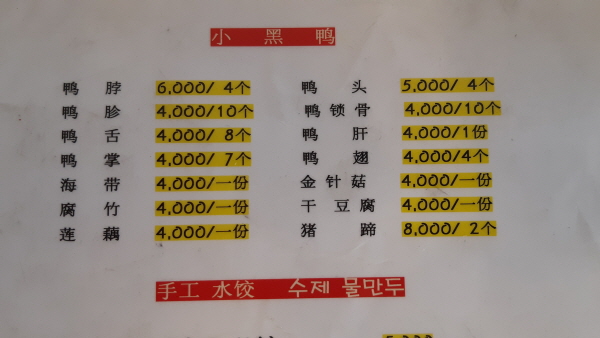 小 黑 鸭
鸭 脖 6,000/ 4个 鸭 头 5,000/ 4个
鸭 胗 4,000/10个 鸭 锁 骨 4,000/10个
鸭 舌 4,000/ 8个 鸭 肝 4,000/1份
鸭 掌 4,000/ 7个 鸭 翅 4,000/4个
海 带 4,000/一份 金 针 菇 4,000/一份
腐 竹 4,000/一份 干 豆 腐 4,000/一份
莲 藕 4,000/一份 猪 蹄 8,000/ 2个
手工 水饺 수제 물만두